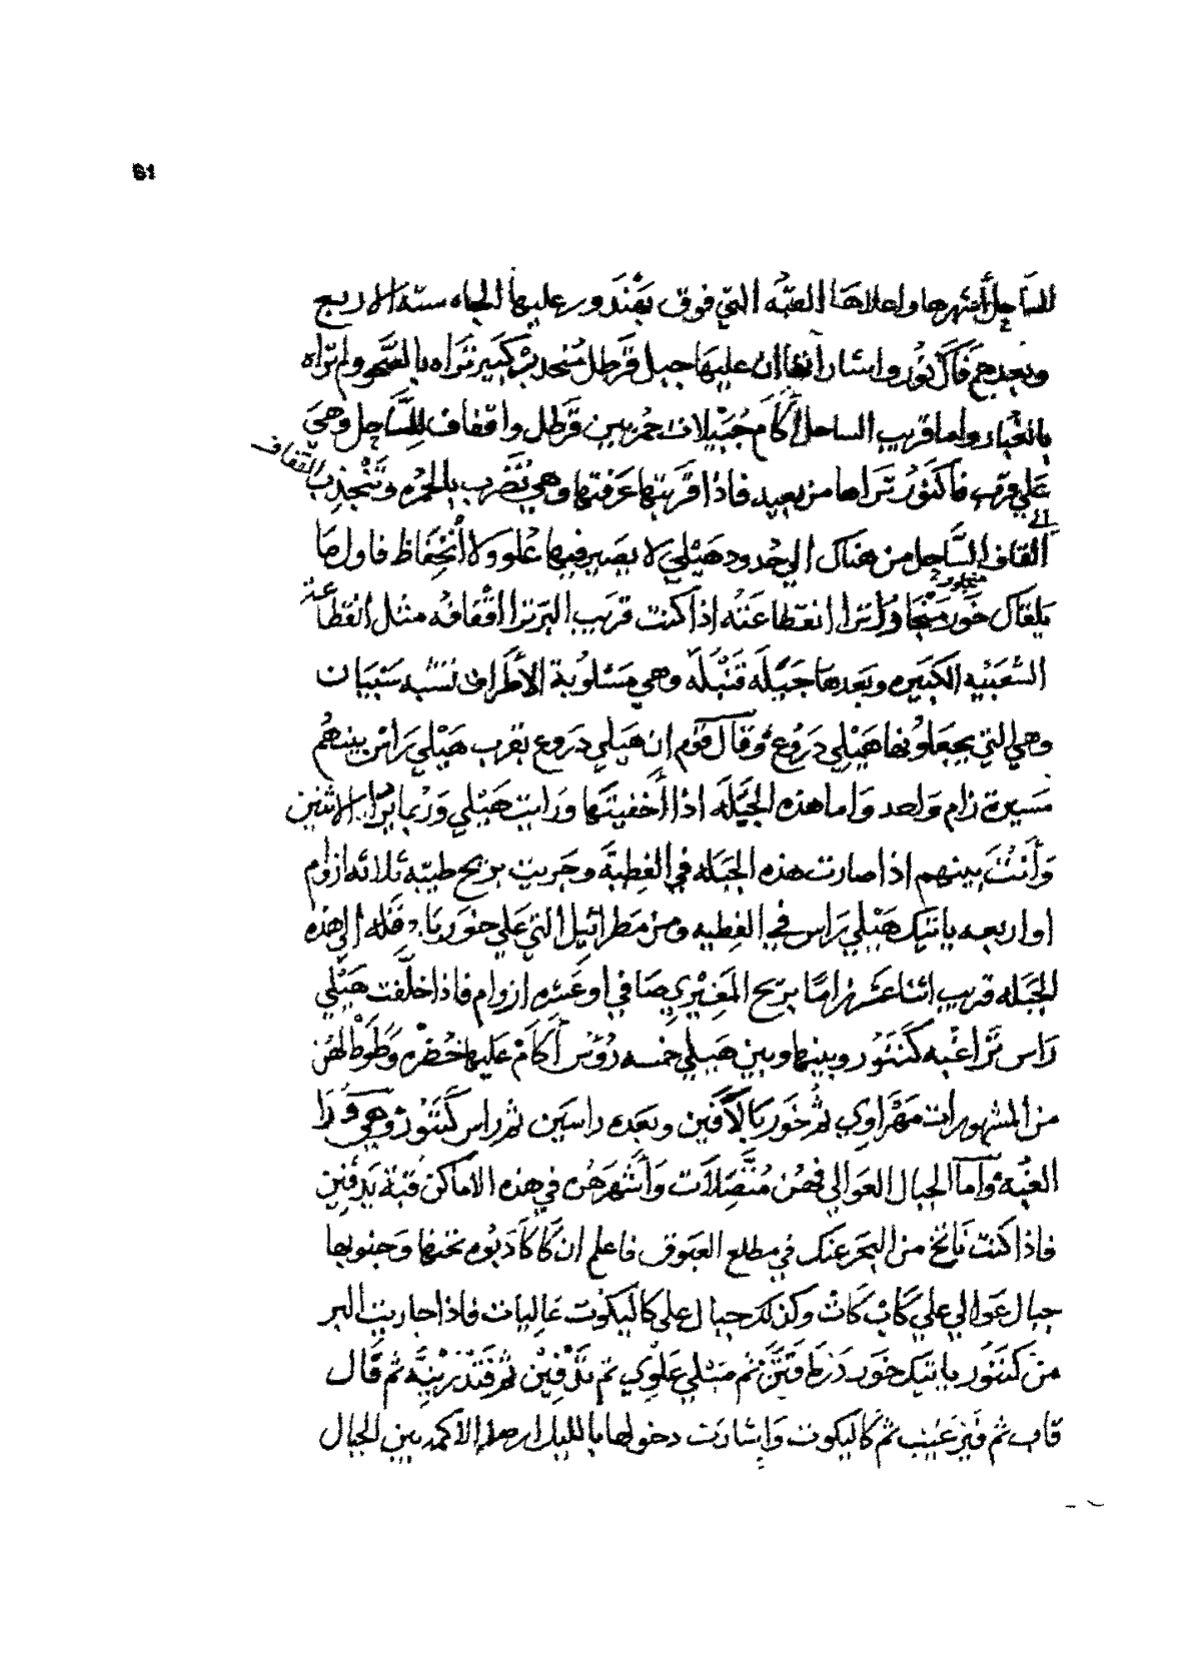 61
للساحل أشهرها واعلاها القبّه التي فوق بفندور عليها الجاه ستة الا ربع
وبعدهم فاكنور واشاراتها ان عليها جبل قرطل منحدب كبير تراه بالصحو ولم تراه
بالغبار واما قريب الساحل أكام جبيلات حمر بين قرطل واقفاف للساحل وهي
على قرب فاكنور تراها من بعيد فاذا قربتها عرفتها وهي تضرب بالحمره وتنجذب القفاف
القاف الى الساحل من هناك الي حدود هيلي لا يصير فيها علو ولا أنخفاظ فاول ما
يلقاك خور منجلور ترا انقطاعته اذا كنت قريب البر ترا اقفافه مثل انقطاعة
الشعبيه الكبيره وبعدها جبيله قنبله وهي مسلوبة الأطراف تشبه سيبان
وهي التي يجعلونها هيلي دروع وقال قوم ان هيلي دروع بقرب هيلي راس بينهم
مسيرة زام واحد واما هذه الجبله اذا أخفيتها ورايت هيلي وربما ترا الاثنين
وأنت بينهم اذا صارت هذه الجبله في الغطية وجريت بريح طيبه ثلاثه ازوام
او اربعه ياتيك هيلي راس في الغطيه ومن مطراتيل التي على خور باقله الى هذه
الجبله قريب اثنا عشر زاما بريح المغيري صافي او عشره ازوام فاذا خلفت هيلي
راس ترا غبه كننور وبينها وبين هيلي خمسه رؤس أكام عليها خضره وطوطالهن
من المشهورات مهراوي ثم خور بالافين وبعده راسين ثم راس كننور وهي ورا
الغبه وأما الجبال العوالي فهن متصلات وأشهرهن في هذه الاماكن قبة يدفين
فاذا كنت ناتخ من البحر عنك في مطلع العيوق فاعلم ان كاكاديوه تحتها وجنوبها
جبال عوالي علي كاب كات وكذلك جبال على كاليكوت عاليات فاذا جاريت البر
من كننور ياتيك خور درفتن ثم ميلي علوي ثم بدفين ثم فندرينه ثم قال
قاب ثم فيز عنيب ثم كاليكوت وإشارت دخولها بالليل الاكمد بين الجبال